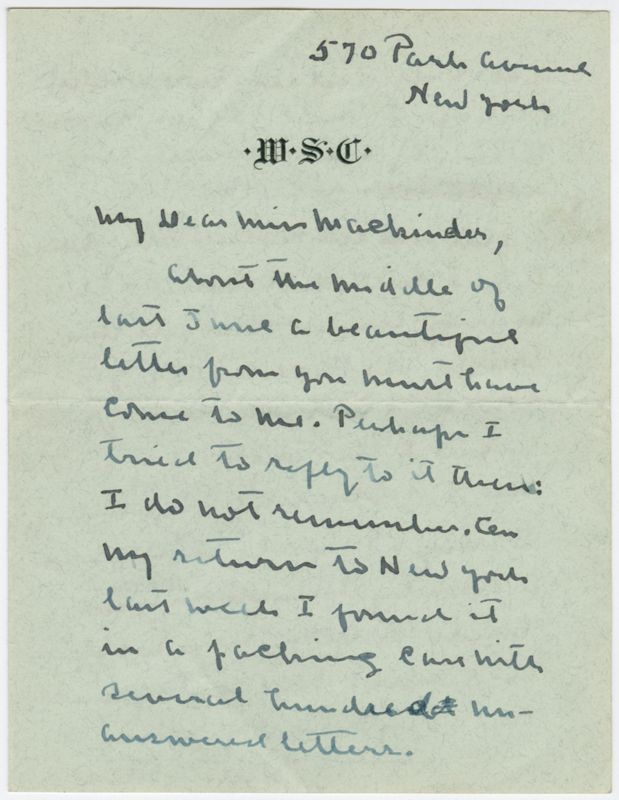 570 Park Avenue
New York
·W·S·C·
My Dear Miss Mackinder,
About the middle of
last June a beautiful
letter from you must have
come to me. Perhaps I
tried to reply to it then:
I do not remember. On
my return to New York
last week I found it
in a packing case with
several hundred un-
answered letters.